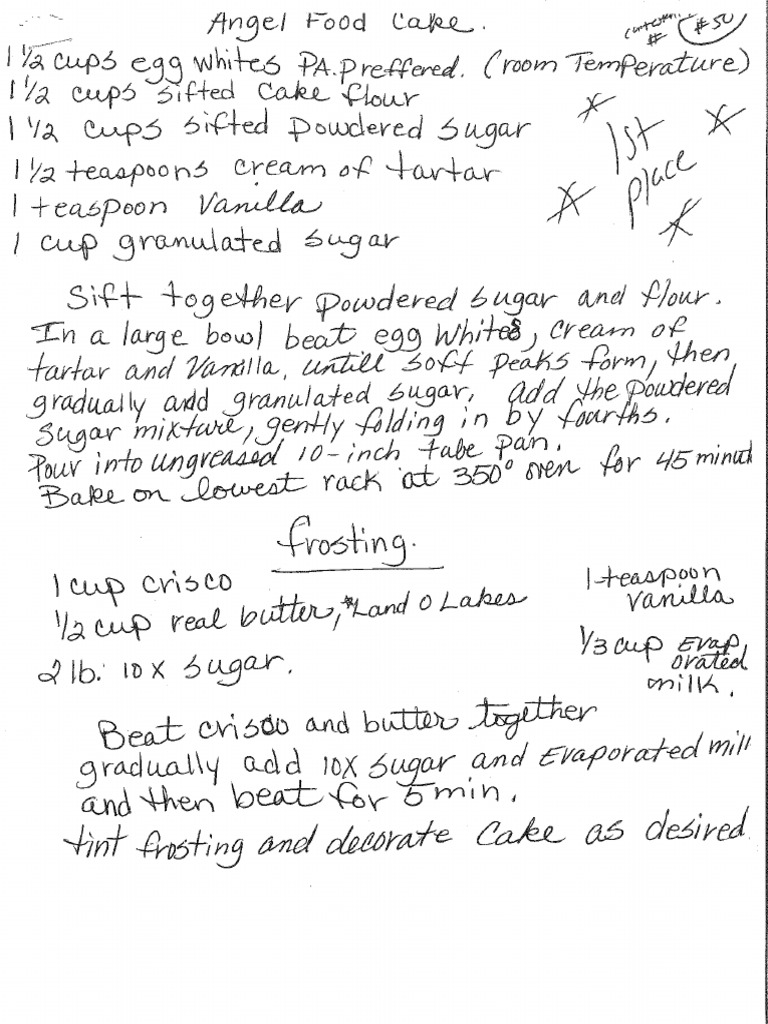 Angel Food Cake.
contestant # #50
1 1/2 cups egg whites PA. preffered. (room Temperature)
1 1/2 cups sifted Cake flour
1 1/2 cups sifted Powdered Sugar
1 1/2 teaspoons cream of tartar
1 teaspoon Vanilla
1 cup granulated sugar
1st
place
Sift together powdered sugar and flour.
In a large bowl beat egg whites, cream of
tartar and Vanilla, untill soft peaks form, then
gradually add granulated sugar. add the powdered
sugar mixture, gently folding in by fourths.
Pour into ungreased 10-inch tube pan.
Bake on lowest rack at 350° oven for 45 minut
frosting.
1 cup crisco
1/2 cup real butter, *Land O Lakes
2 lb. 10x sugar.
1 teaspoon
vanilla
1/3 cup Evap
orated
milk.
Beat crisco and butter together
gradually add 10x sugar and Evaporated mil
and then beat for 5 min.
tint frosting and decorate Cake as desired.